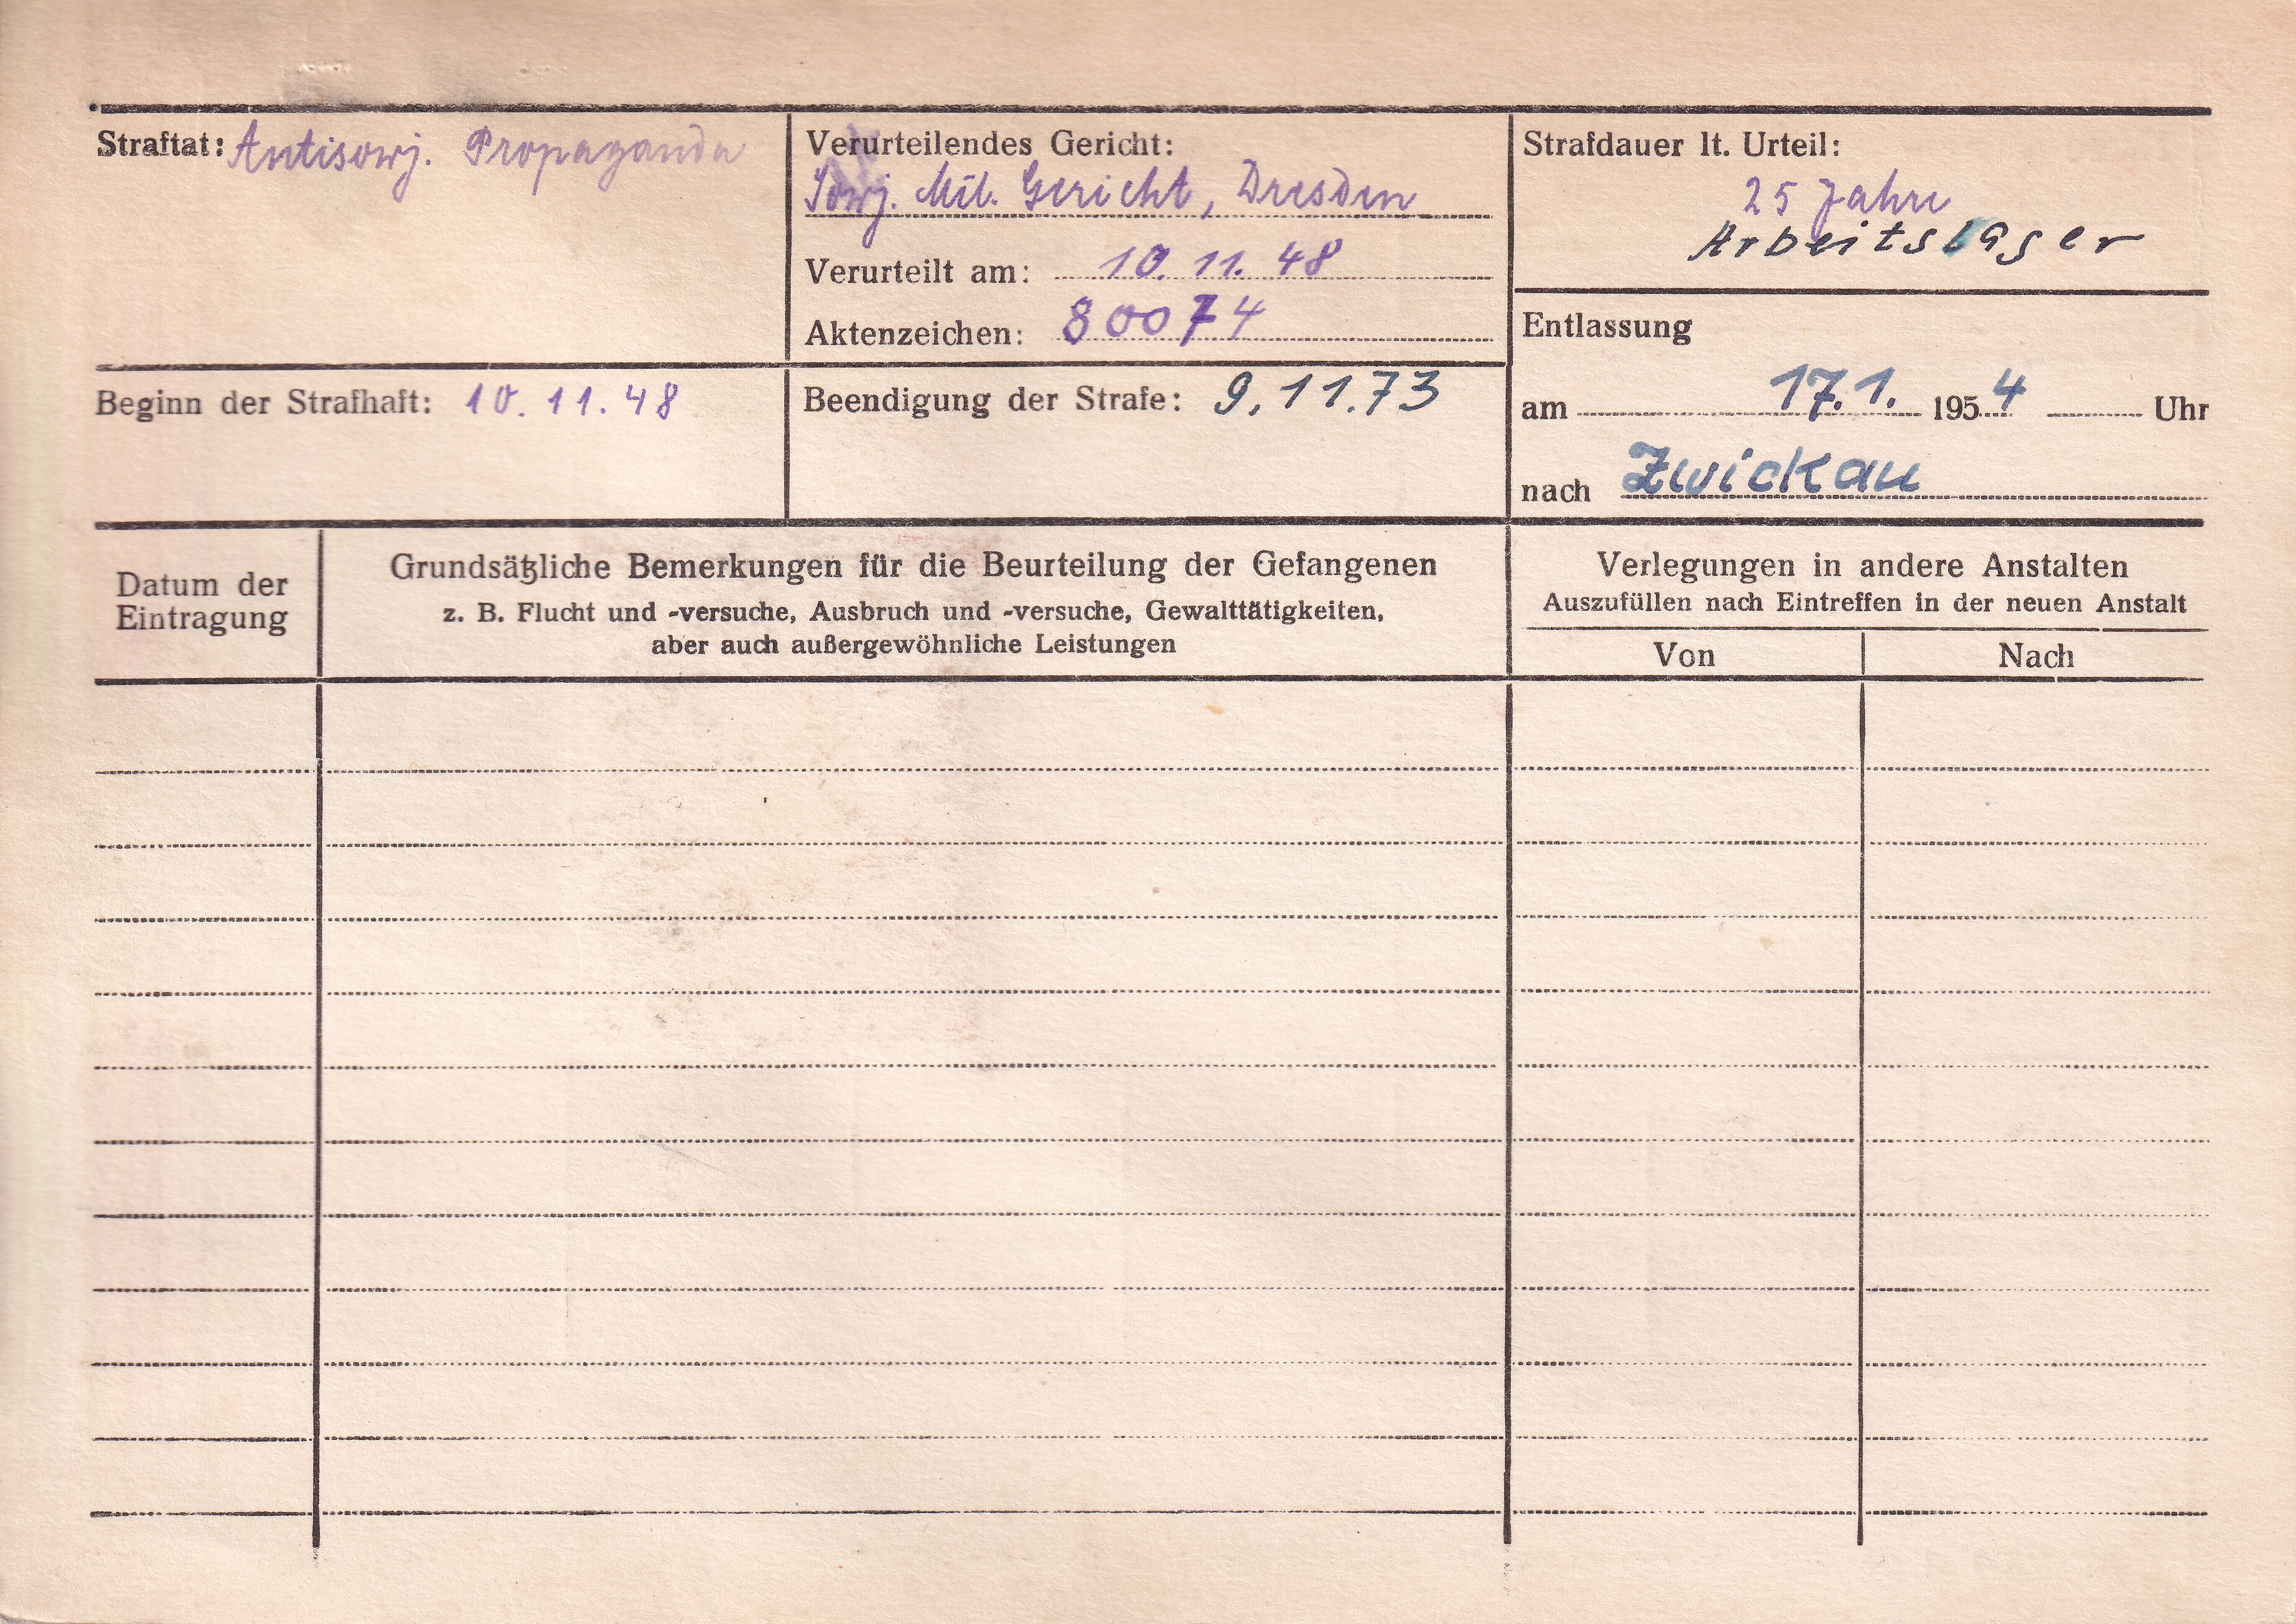 Straftat: Antisowj. Propaganda
Verurteilendes Gericht:
Sowj. Mil. Gericht, Dresden
Verurteilt am: 10. 11. 48
Aktenzeichen: 80074
Strafdauer lt. Urteil:
25 Jahre
Arbeitslager
Beginn der Strafhaft: 10. 11. 48
Beendigung der Strafe: 9. 11. 73
Entlassung
am 17. 1. 1954 Uhr
nach Zwickau
Datum der
Eintragung
Grundsätzliche Bemerkungen für die Beurteilung der Gefangenen
z. B. Flucht und -versuche, Ausbruch und -versuche, Gewalttätigkeiten,
aber auch außergewöhnliche Leistungen
Verlegungen in andere Anstalten
Auszufüllen nach Eintreffen in der neuen Anstalt
Von Nach